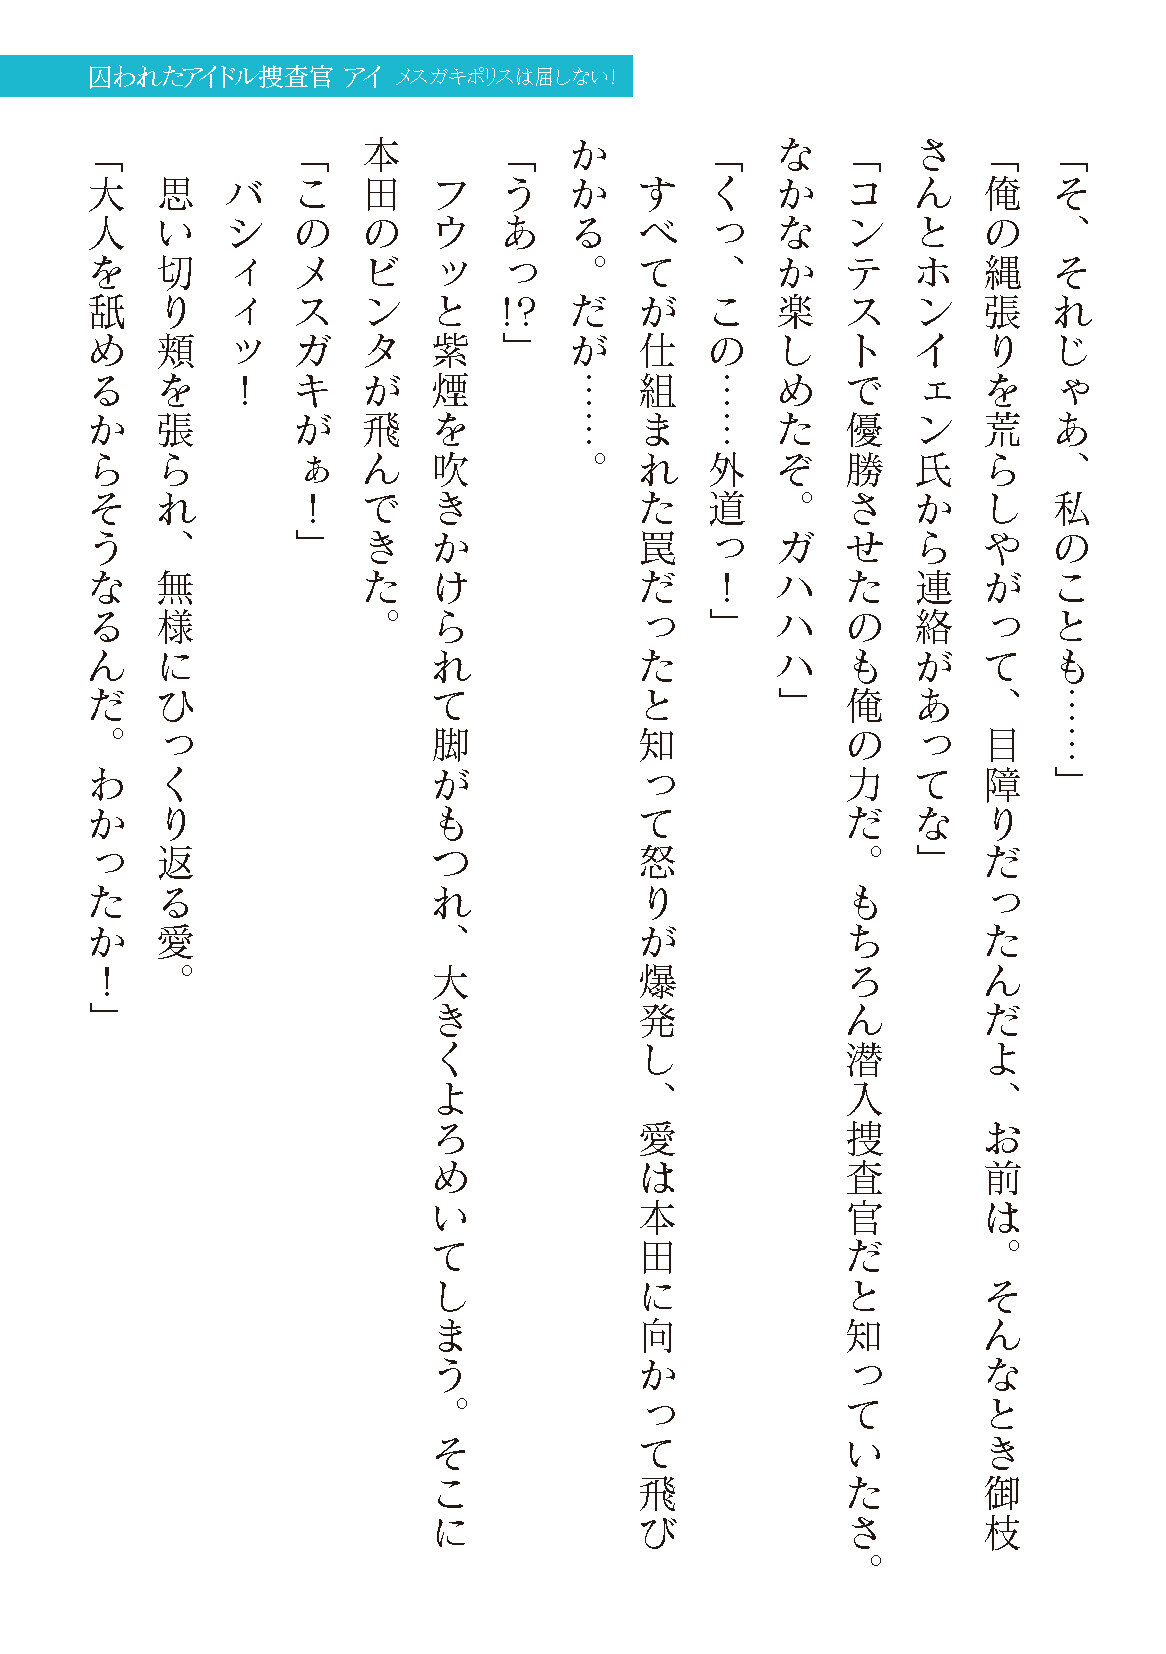 囚われたアイドル捜査官 アイ メスガキポリスは屈しない!
「そ、それじゃあ、私のことも……」
「俺の縄張りを荒らしやがって、目障りだったんだよ、お前は。そんなとき御枝
さんとホンイェン氏から連絡があってな」
「コンテストで優勝させたのも俺の力だ。もちろん潜入捜査官だと知っていたさ。
なかなか楽しめたぞ。ガハハハ」
「くっ、この……外道っ!」
すべてが仕組まれた罠だったと知って怒りが爆発し、愛は本田に向かって飛び
かかる。だが……。
「うあっ!?」
フウッと紫煙を吹きかけられて脚がもつれ、大きくよろめいてしまう。そこに
本田のビンタが飛んできた。
「このメスガキがぁ!」
バシィィッ!
思い切り頬を張られ、無様にひっくり返る愛。
「大人を舐めるからそうなるんだ。わかったか!」